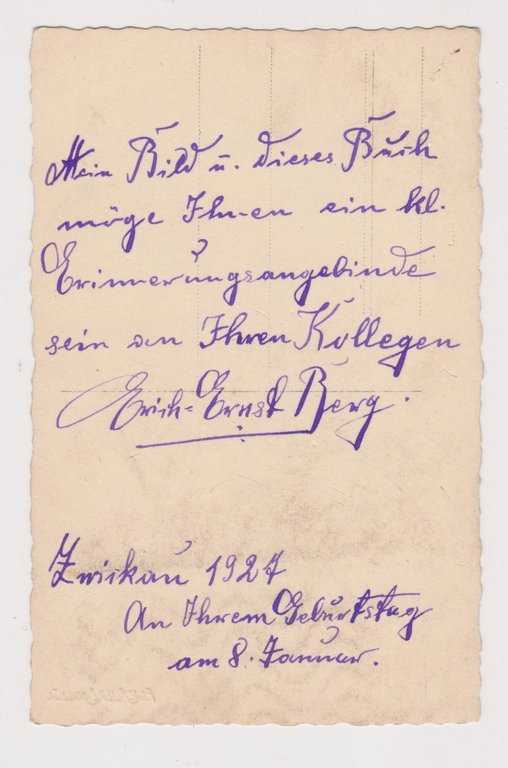 Mein Bild u. dieses Buch
möge Ihnen ein kl.
Erinnerungsangebinde
sein an Ihren Kollegen
Erich-Ernst Berg.
Zwickau 1927
An Ihrem Geburtstag
am 8. Januar.